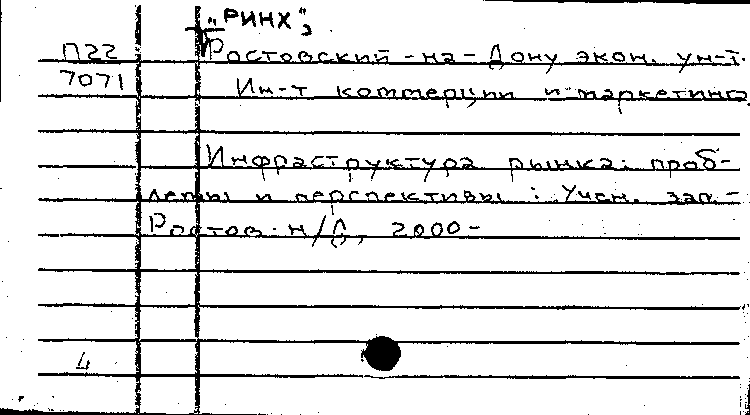 "РИНХ",
П22 Ростовский-на-Дону экон. ун-т.
7071 Ин-т коммерции и маркетинга
Инфраструктура рынка: проб-
лемы и перспективы : Учен. зап. -
Ростов н/Д, 2000 -
4